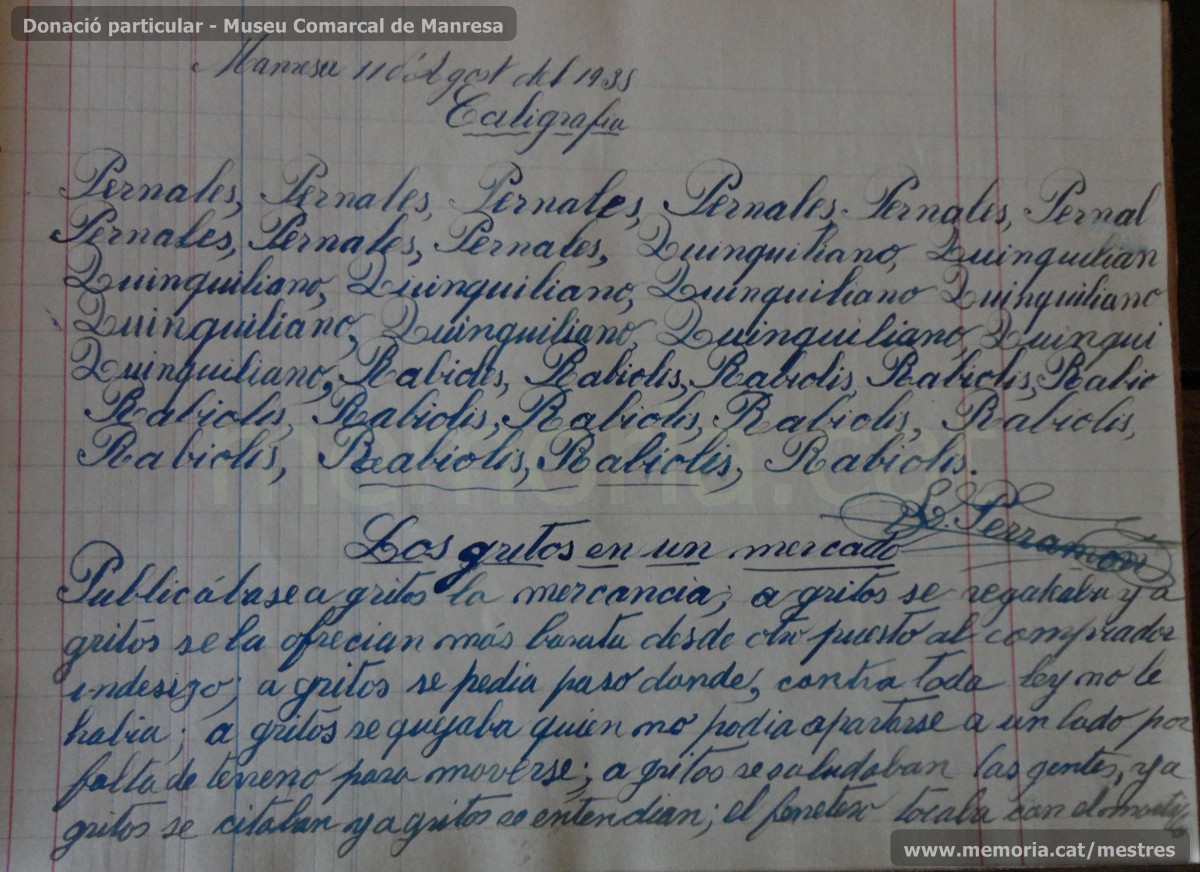 Donació particular - Museu Comarcal de Manresa
Manresa 11 d'Agost del 1935
Caligrafia
Pernales, Pernales, Pernales, Pernales. Pernales, Pernal
Pernales, Pernales, Pernales, Quinquiliano, Quinquilian
Quinquiliano, Quinquiliano, Quinquiliano Quinquiliano
Quinquiliano, Quinquiliano, Quinquiliano, Quinqui
Quinquiliano, Rabiolis, Rabiolis, Rabiolis, Rabiolis, Rabio
Rabiolis, Rabiolis, Rabiolis, Rabiolis, Rabiolis,
Rabiolis, Rabiolis, Rabiolis, Rabiolis.
memoria.cat
Los gritos en un mercado
Publicábase a gritos la mercancia; a gritos se regateaba y a
gritos se la ofrecian más barata desde otro puesto al comprador
indesizo; a gritos se pedia paso donde, contra toda ley no le
habia; a gritos se quejaba quien no podia apartarse a un lado por
falta de terreno para moverse; a gritos se saludaban las gentes, y a
gritos se citaban y a gritos se entendian; el tocaba con el
www.memoria.cat/mestres